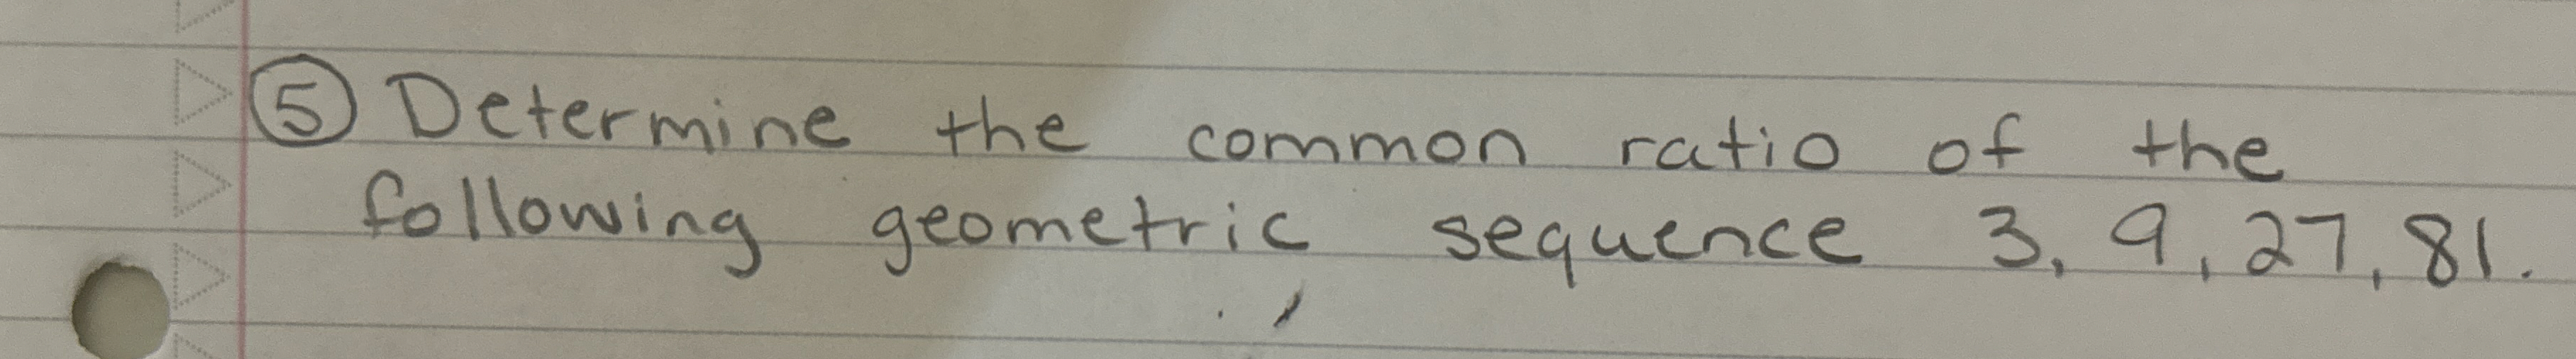 ⑤ Determine the common ratio of the
following geometric sequence 3, 9, 27, 81.